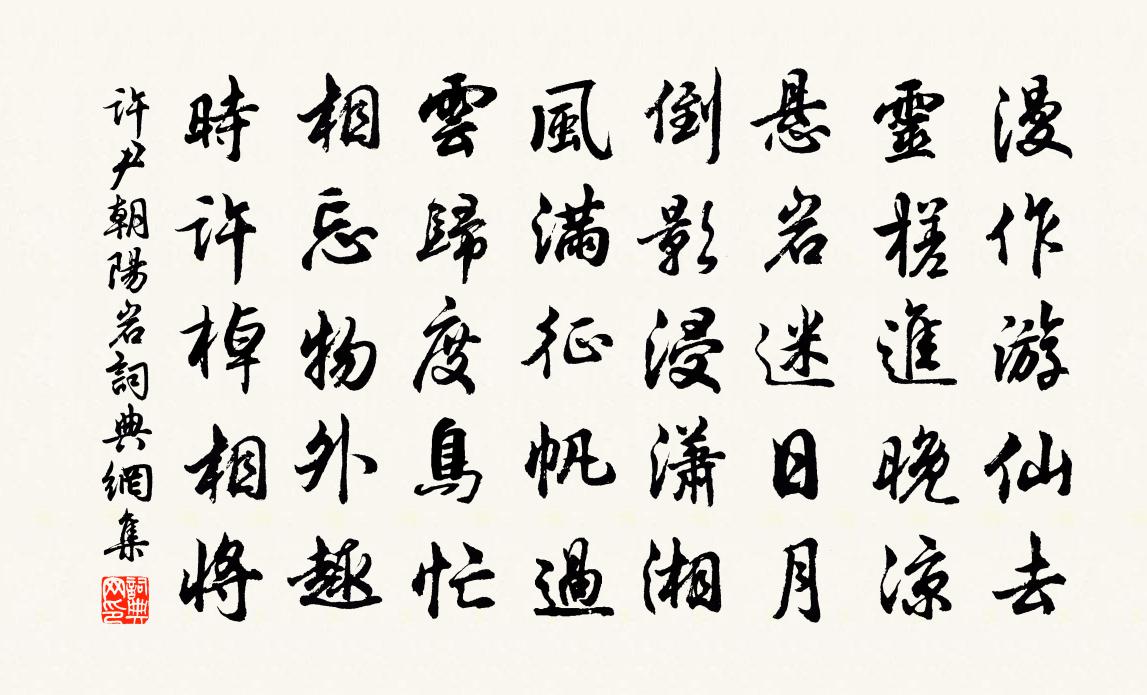 漫作游仙去
靈槎進晚凉
悬岩迷日月
倒影浸瀟湘
風滿征帆過
雲歸度鳥忙
相忘物外趣
時許棹相將
許尹朝陽岩詞典網集
詞典网印